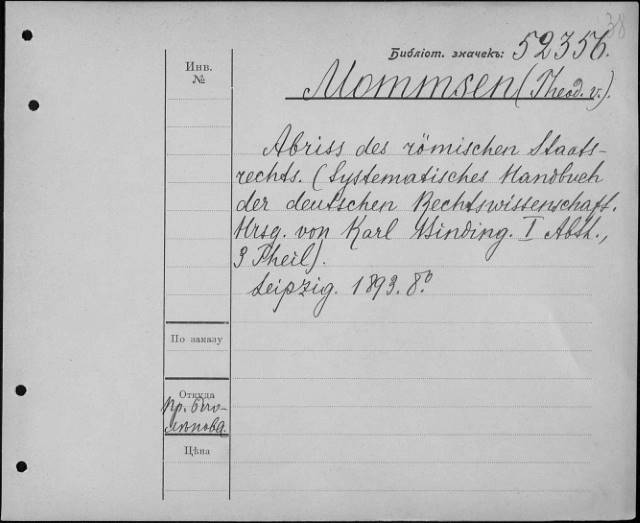 38
Библіот. значекъ: 52356.
Инв.
№
Mommsen (Theod. v.).
Abriss des römischen Staats-
rechts. (Systematisches Handbuch
der deutschen Rechtswissenschaft.
Hrsg. von Karl Binding. I Abth.,
3 Theil).
Leipzig. 1893. 8.º
По заказу
Откуда
Пр. Бого-
лѣпова.
Цѣна